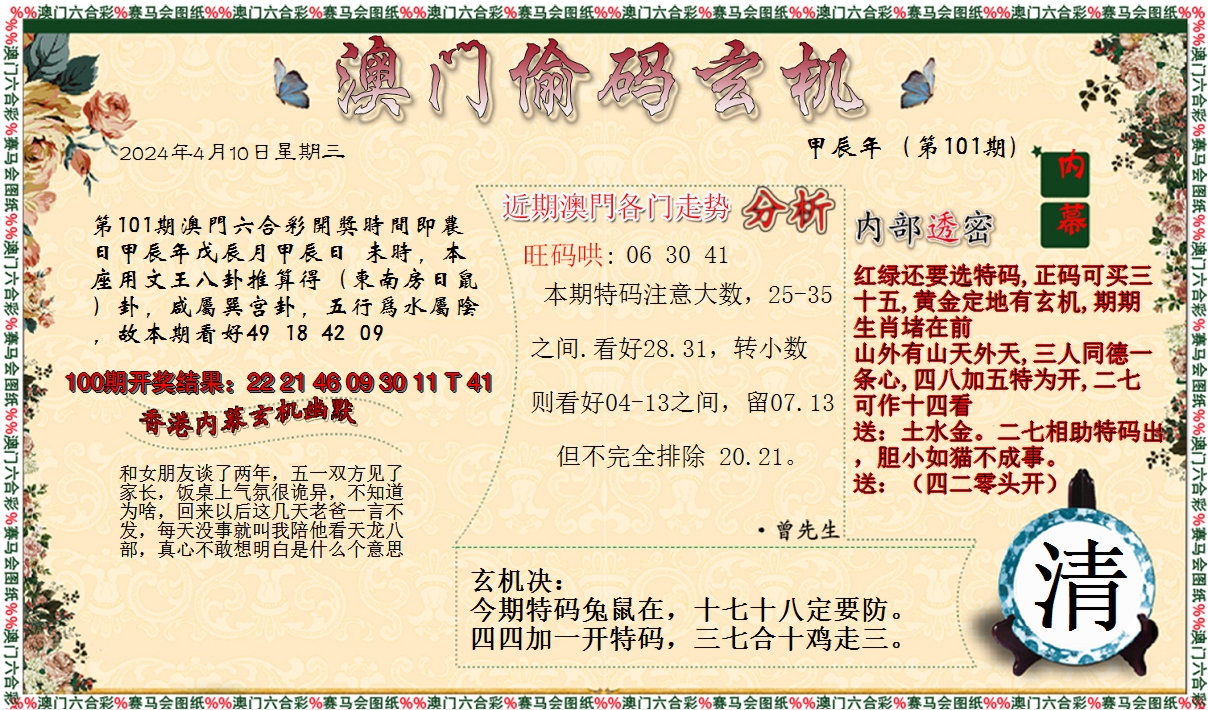 %%澳门六合彩%赛马会图纸%%澳门六合彩%赛马会图纸%%澳门六合彩%赛马会图纸%%澳门六合彩%赛马会图纸%%澳门六合彩%赛马会图纸%%澳门六合彩%赛马会图纸%%
澳门偷码玄机
2024年4月10日星期三
甲辰年（第101期）
第101期澳門六合彩開獎時間即農
日甲辰年戊辰月甲辰日 未時，本
座用文王八卦推算得（東南房日鼠
）卦，咸屬巽宫卦，五行爲水屬陰
，故本期看好49 18 42 09
100期开奖结果：22 21 46 09 30 11 T 41
香港内幕玄机幽默
和女朋友谈了两年，五一双方见了
家长，饭桌上气氛很诡异，不知道
为啥，回来以后这几天老爸一言不
发，每天没事就叫我陪他看天龙八
部，真心不敢想明白是什么个意思
近期澳門各门走势 分析
旺码哄: 06 30 41
本期特码注意大数，25-35
之间.看好28.31，转小数
则看好04-13之间，留07.13
但不完全排除 20.21。
·曾先生
玄机决：
今期特码兔鼠在，十七十八定要防。
四四加一开特码，三七合十鸡走三。
内幕
内部透密
红绿还要选特码,正码可买三
十五,黄金定地有玄机,期期
生肖堵在前
山外有山天外天,三人同德一
条心,四八加五特为开,二七
可作十四看
送：土水金。二七相助特码出
，胆小如猫不成事。
送：（四二零头开）
清
%%澳门六合彩%赛马会图纸%%澳门六合彩%赛马会图纸%%澳门六合彩%赛马会图纸%%澳门六合彩%赛马会图纸%%澳门六合彩%赛马会图纸%%澳门六合彩%赛马会图纸%%